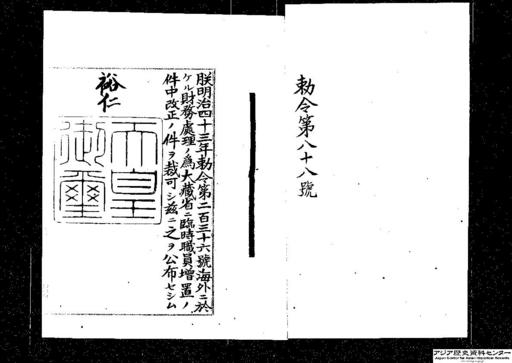 勅令第八十八號
朕明治四十三年勅令第二百三十六號海外ニ於
ケル財務處理ノ爲大藏省ニ臨時職員增置ノ
件中改正ノ件ヲ裁可シ茲ニ之ヲ公布セシム
裕仁
天皇
御璽
アジア歴史資料センター
Japan Center for Asian Historical Records